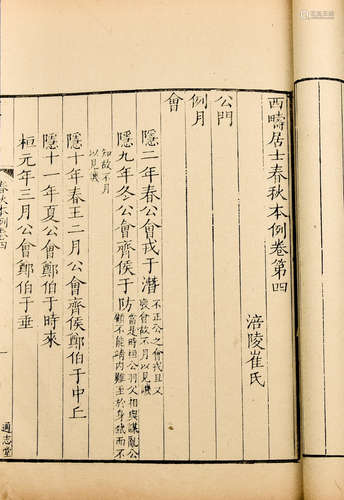 西疇居士春秋本例卷第四
涪陵崔氏
公門
例月
會
隱二年春公會戎于潛
不正公之會戎且又
喪會故不月以見譏
隱九年冬公會齊侯于防
當是時桓公羽父相與謀亂公
不能
知故不月
以見譏
隱十年春王二月公會齊侯鄭伯于中丘
隱十一年夏公會鄭伯于時來
桓元年三月公會鄭伯于垂
春秋本例卷四
通志堂